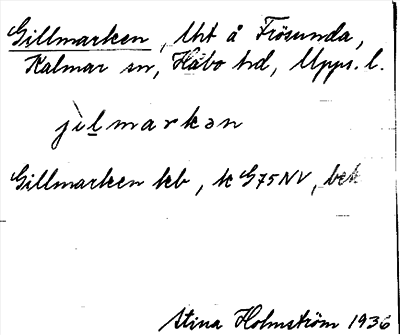 Gillmarken, Uht å Frösunda,
Kalmar sn, Håbo hd, Upps. l.
jìlmarkən
Gillmarken kb, k G75NV, bek
Stina Holmström 1936